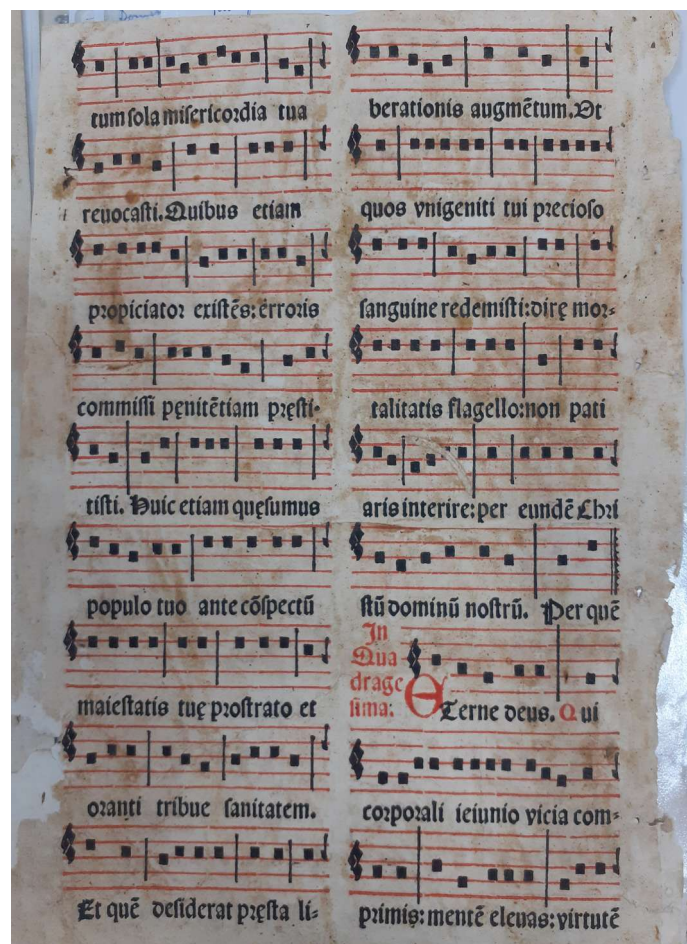 tum sola misericordia tua
reuocasti. Quibus etiam
propiciator existēs: erroris
commissi pęnitētiam pręsti-
tisti. Huic etiam quęsumus
populo tuo ante cōspectū
maiestatis tuę prostrato et
oranti tribue sanitatem.
Et quē desiderat pręsta li-
berationis augmētum. Ut
quos vnigeniti tui precioso
sanguine redemisti: dirę mor-
talitatis flagello: non pati
aris interire: per eundē Chri
stū dominū nostrū. Per quē
In
Qua
drage
sima:
Eterne deus. Qui
corporali ieiunio vicia com-
primis: mentē eleuas: virtutē